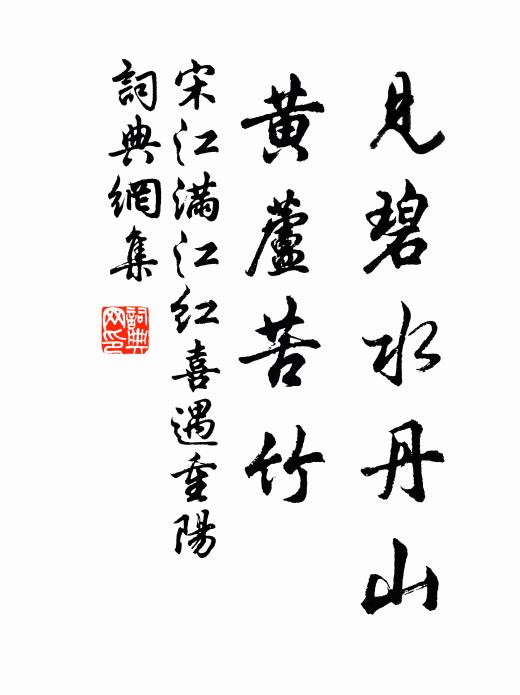 見碧水丹山
黃蘆苦竹
宋江满江红喜遇重陽
詞典網集
詞典
网印